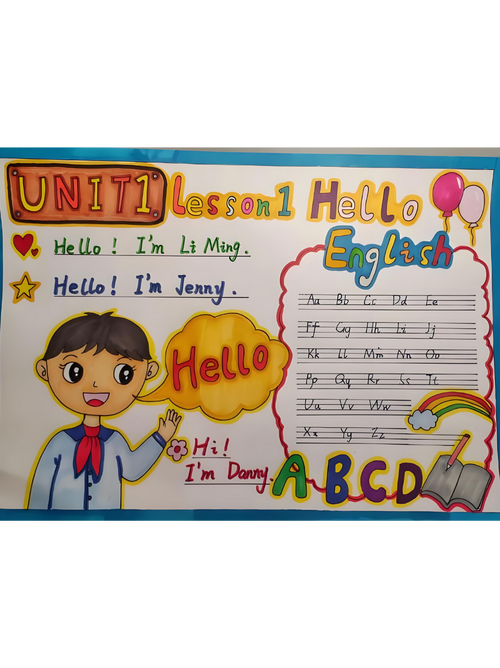 UNIT1 Lesson1 Hello
Hello! I'm Li Ming.
Hello! I'm Jenny.
Hello
Hi!
I'm Danny.
English
Aa Bb Cc Dd Ee
Ff Gg Hh Ii Jj
Kk Ll Mm Nn Oo
Pp Qq Rr Ss Tt
Uu Vv Ww
Xx Yy Zz
ABCD